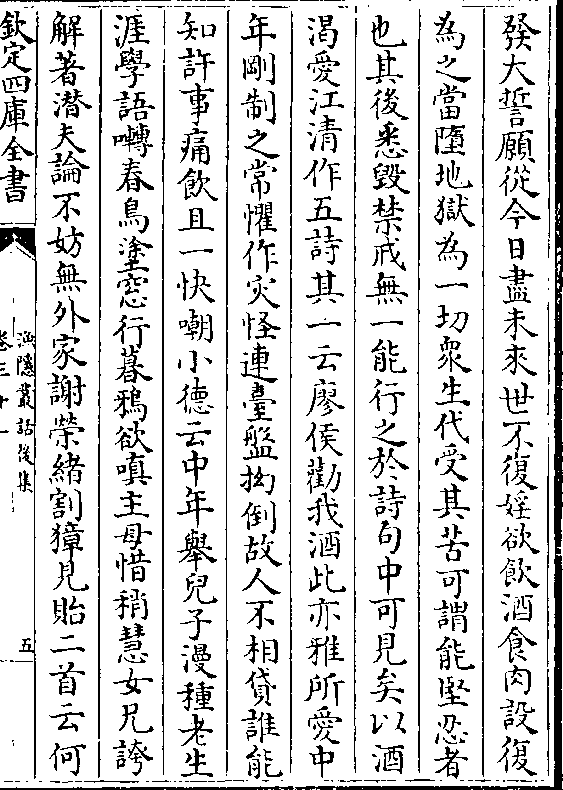 發大誓願從今日盡未來世不復婬欲飲酒食肉設復
為之當墮地獄為一切衆生代受其苦可謂能堅忍者
也其後悉毀禁戒無一能行之於詩句中可見矣以酒
渴愛江清作五詩其一云廖侯勸我酒此亦雅所愛中
年剛制之常懼作灾怪連臺盤拗倒故人不相貸誰能
知許事痛飲且一快嘲小德云中年舉兒子漫種老生
涯學語囀春鳥塗窓行暮鴉欲嗔主母惜稍慧女兄誇
解著潜夫論不妨無外家謝榮緒割獐見貽二首云何
欽定四庫全書
漁隱叢話後集
卷三十一
五